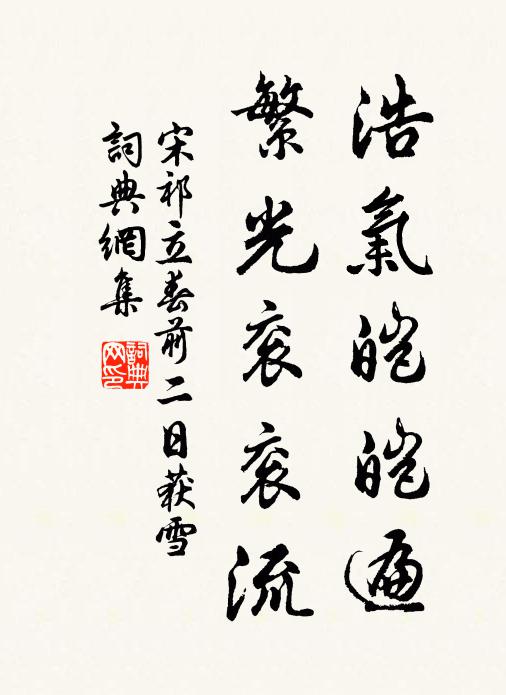 浩氣皚皚遍
繁光袞袞流
宋祁立春前二日获雪
詞典網集
詞典网印